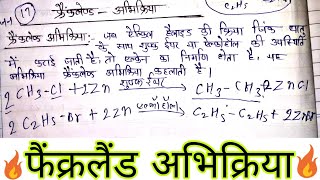 17
फ्रैंकलेण्ड - अभिक्रिया
फ्रैंकलेंड अभिक्रिया:- जब ऐल्किल हैलाइड की क्रिया जिंक धातु
के साथ शुष्क ईथर या ऐल्कोहॉल की उपस्थिति
में कराई जाती है, तो एल्केन का निर्माण होता है, यह
अभिक्रिया फ्रैंकलेंड अभिक्रिया कहलाती है।
2CH₃-Cl + 2Zn शुष्क ईथर CH₃-CH₃ + 2ZnCl
2C₂H₅-Br + 2Zn एल्कोहॉल C₂H₅-C₂H₅ + 2ZnBr
🔥फैंक्रलैंड अभिक्रिया🔥